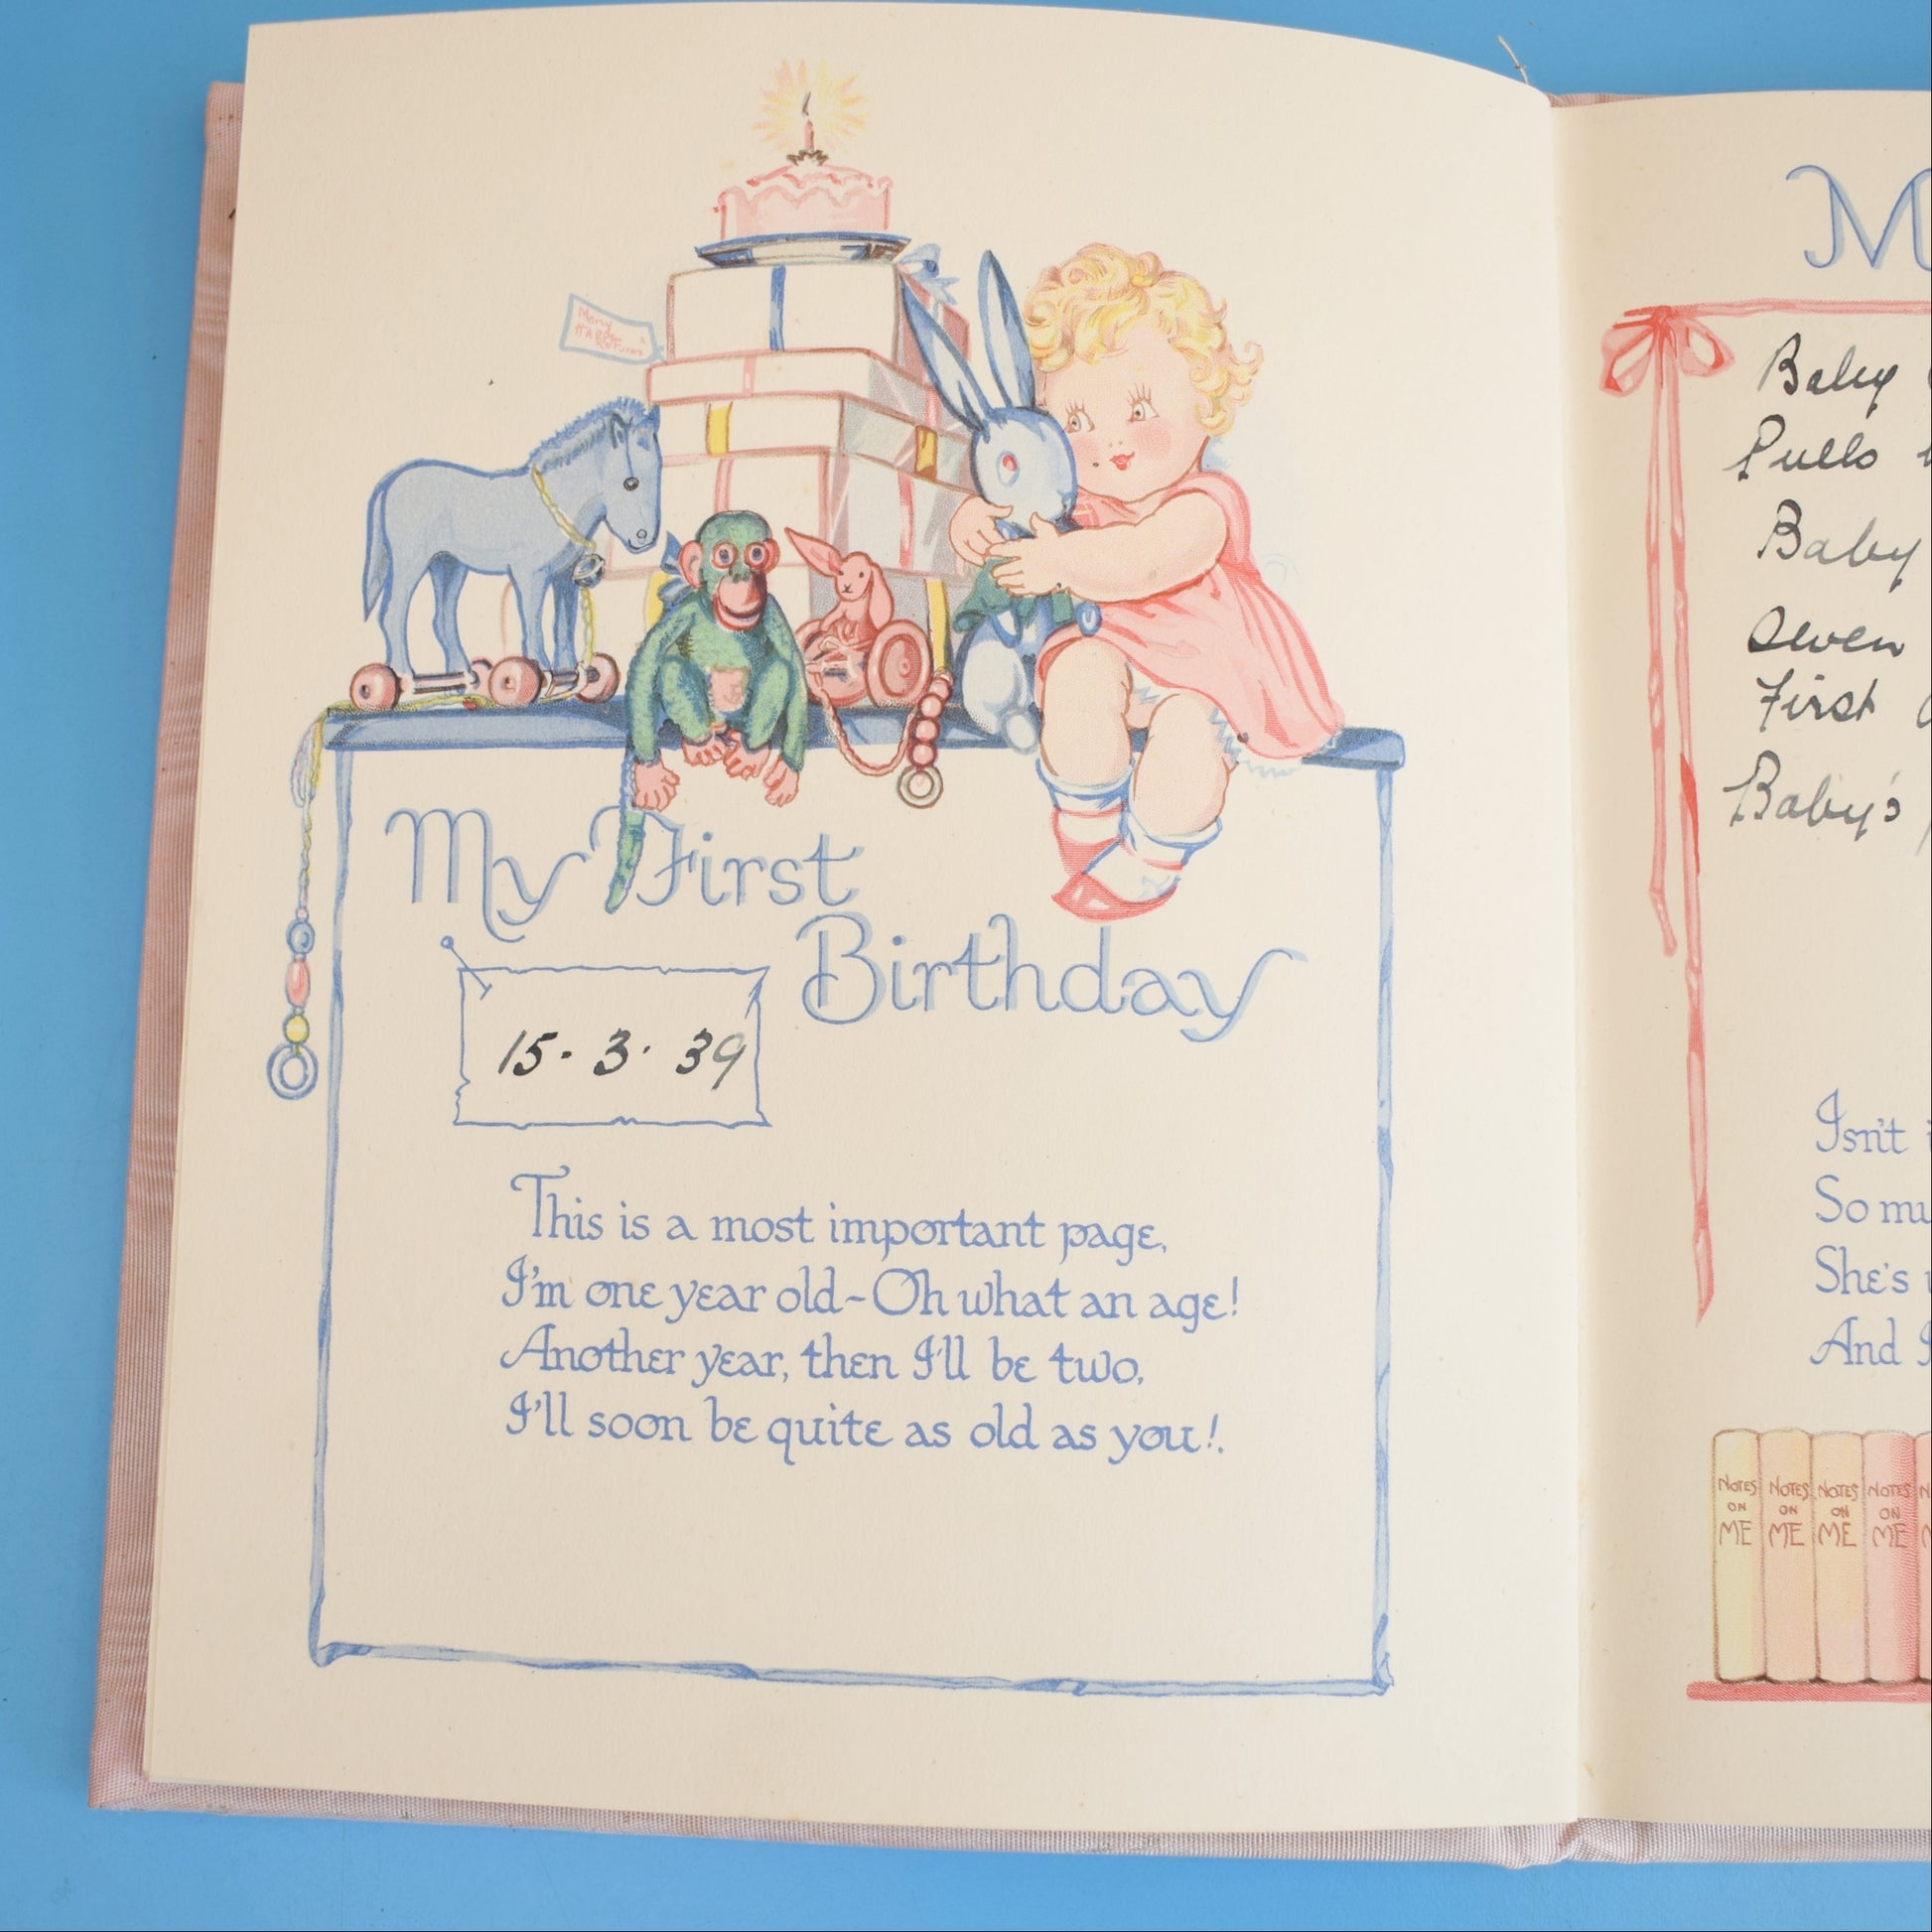 Many
HAPPY
RETURNS
My First
Birthday
15 · 3 · 39
This is a most important page,
I'm one year old – Oh what an age!
Another year, then I'll be two,
I'll soon be quite as old as you!.
M
Baby
Pulls
Baby
Seven
First
Baby's
Isn't
So mu
She's
And I
NOTES
ON
ME
NOTES
ON
ME
NOTES
ON
ME
NOTES
ON
ME